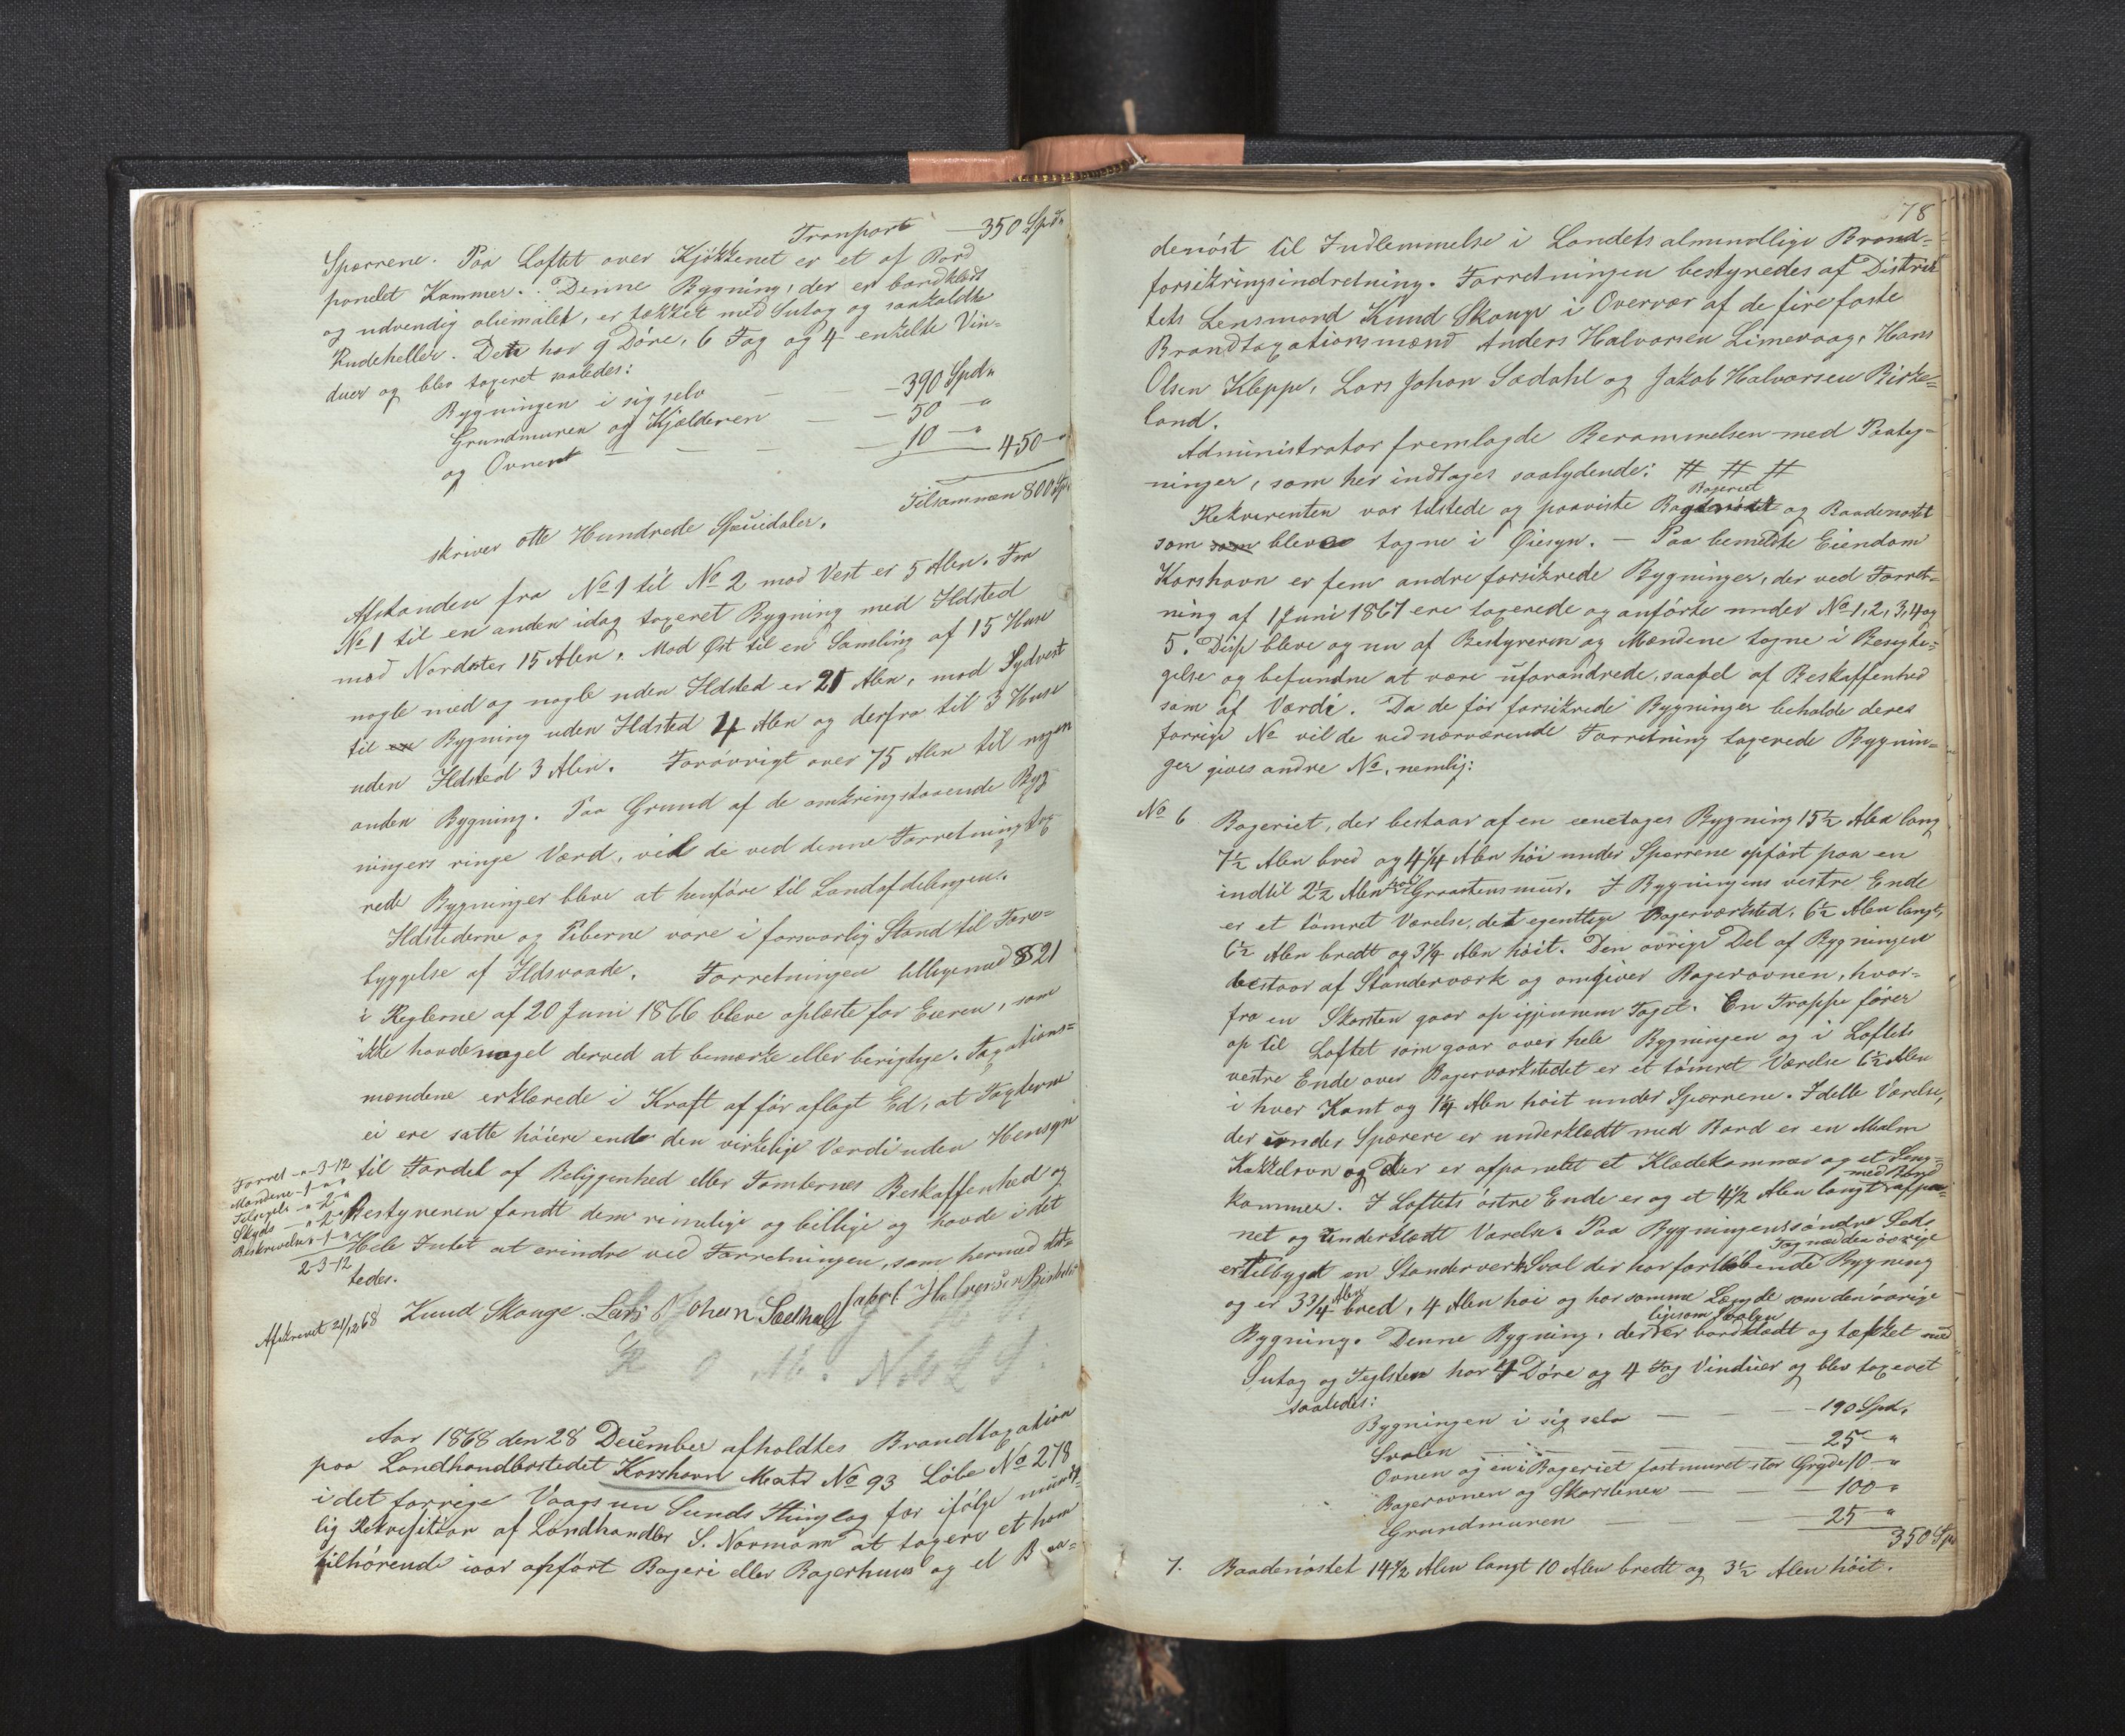 Transport — 350 Spd"
Sparrene. Paa Loftet over Kjökkenet er et af Bord
panelet Kammer. Denne Bygning, der er bordklædt
og udvendig oliemalet, er tækket med Sutag og saakaldte
Rudeheller. Den har 9 Döre, 6 Fag og 4 enkelte Vin=
duer og blev taxeret saaledes:
Bygningen i sig selv — — 390 Spd"
Grundmuren og Kjælderen — — 50 — "
og Ovnene — — — — 10 — " 450 — "
Tilsammen 800 Sp
skriver otte Hundrede Speciedaler.
Afstanden fra No 1 til No 2 mod Vest er 5 Alen. Fra
No 1 til en anden idag taxeret Bygning med Ildsted
mod Nordester 15 Alen. Mod Øst til en Samling af 15 Huse
nogle med og nogle uden Ildsted er 21 Alen, mod Sydvest
til en Bygning uden Ildsted 4 Alen og derfra til 3 Huse
uden Ildsted 3 Alen. Forövrigt over 75 Alen til nogen
anden Bygning. Paa Grund af de omkringstaaende Byg
ningers ringe Værd, vil de ved denne Forretning tax
rede Bygninger blive at henföre til Landafdelingen.
Ildstederne og Piberne vare i forsvarlig Stand til Fore=
byggelse af Ildsvaade. Forretningen tilligemed § 21
i Reglerne af 20 Juni 1866 bleve oplæste for Eieren, som
ikke havde noget derved at bemærke eller berigtige. Taxations=
mændene erklærede i Kraft af för aflagt Ed, at Taxterne
ei ere satte höiere end den virkelige Værdi uden Hensyn
til Fordel af Beliggenhed eller Tomternes Beskaffenhed og
Bestyreren fandt dem rimelige og billige og havde i det
Hele Intet at erindre ved Forretningen, som hermed slut=
tedes.
Forret - " - 3 - 12
Mændene - 1 - " - "
Tilsigels - " - 2 - "
Skyds — " 2 "
Beskrivelse " - 1 - "
2 - 3 - 12
Afskrevet 21/12 68
Knud Skauge. Lars Johan Sædahl Jakob Halvorsen Birkeland
Aar 1868 den 28 December afholdtes Brandtaxation
paa Landhandlerstedet Korshavn Matr No 93 Löbe No 278
i det forrige Vaags un Sunds Thinglag for ifölge mundt
lig Rekvisition af Landhandler S. Normann at taxere et ham
tilhörende iaar opfört Bageri eller Bagerhuus og et Baa=
78
denöst til Indlemmelse i Landets almindelige Brand=
forsikringsindretning. Forretningen bestyredes af Distrik
tets Lensmand Knud Skauge i Overvær af de fire faste
Brandtaxationsmænd Anders Halvorsen Limevaag, Hans
Olsen Kleppe, Lars Johan Sædahl og Jakob Halvorsen Birke=
land.
Administrator fremlagde Berammelsen med Paateg=
ninger, som her indtages saalydende: # # #
Bageriet
Rekvirenten var tilstede og paaviste og Baadenöstet
som som bleve tagne i Øiesyn. — Paa bemeldte Eiendom
Korshavn er fem andre forsikrede Bygninger, der ved Forret=
ning af 1 Juni 1867 ere taxerede og anförte under No 1, 2, 3, 4 og
5. Disse bleve og nu af Bestyreren og Mændene tagne i Besigti=
gelse og befundne at være uforandrede, saavel af Beskaffenhed
som af Værdi. Da de för forsikrede Bygninger beholde deres
forrige No vil de ved nærværende Forretning taxerede Bygnin=
ger gives andre No, nemlig:
No 6 Bageriet, der bestaar af en eenetages Bygning 15 1/2 Alen lang
7 1/2 Alen bred og 4 1/4 Alen höi under Sparrene opfört paa en
indtil 2 1/2 Alen höi Graastensmur. I Bygningens vestre Ende
er et tömret Værelse, det egentlige Bagerværksted, 6 1/2 Alen langt,
6 1/2 Alen bredt og 3 1/4 Alen höit. Den övrige Del af Bygningen
bestaar af Standerværk og omgiver Bagerovnen, hvor=
fra en Skorsten gaar op igjennem Taget. En Trappe förer
op til Loftet som gaar over hele Bygningen og i Loftets
vestre Ende over Bagerværkstedet er et tömret Værelse 6 1/2 Alen
i hver Kant og 1 1/4 Alen höit under Sparrene. I dette Værelse,
der under Sparrene er underklædt med Bord er en Malm
Kakkelovn og der er afpanelet et Klædekammer og et Seng=
kammer. I Loftets östre Ende er og et 4 1/2 Alen langt med Bord afpa=
net og underklædt Værelse. Paa Bygningens söndre Side
er tilbygget en Standerverk Sval der har fortlöbende Tag med den övrige Bygning
og er 3 3/4 Alen bred, 4 Alen höi og har samme Længde som den övrige
Bygning. Denne Bygning, der ligesom Svalen er bordklædt og tækket med
Sutag og Teglsten har 4 Döre og 4 Fag Vinduer og blev taxeret
saaledes:
Bygningen i sig selv — — — 190 Spd.
Svalen — — — — — 25 — "
Ovnen og en i Bageriet fastmuret stor Gryde 10 — "
Bagerovnen og Skorstenen — — — 100 — "
Grundmuren — — — 25 — "
350 Sp
7. Baadenöstet 14 1/2 Alen langt 10 Alen bredt og 3 1/2 Alen höit.